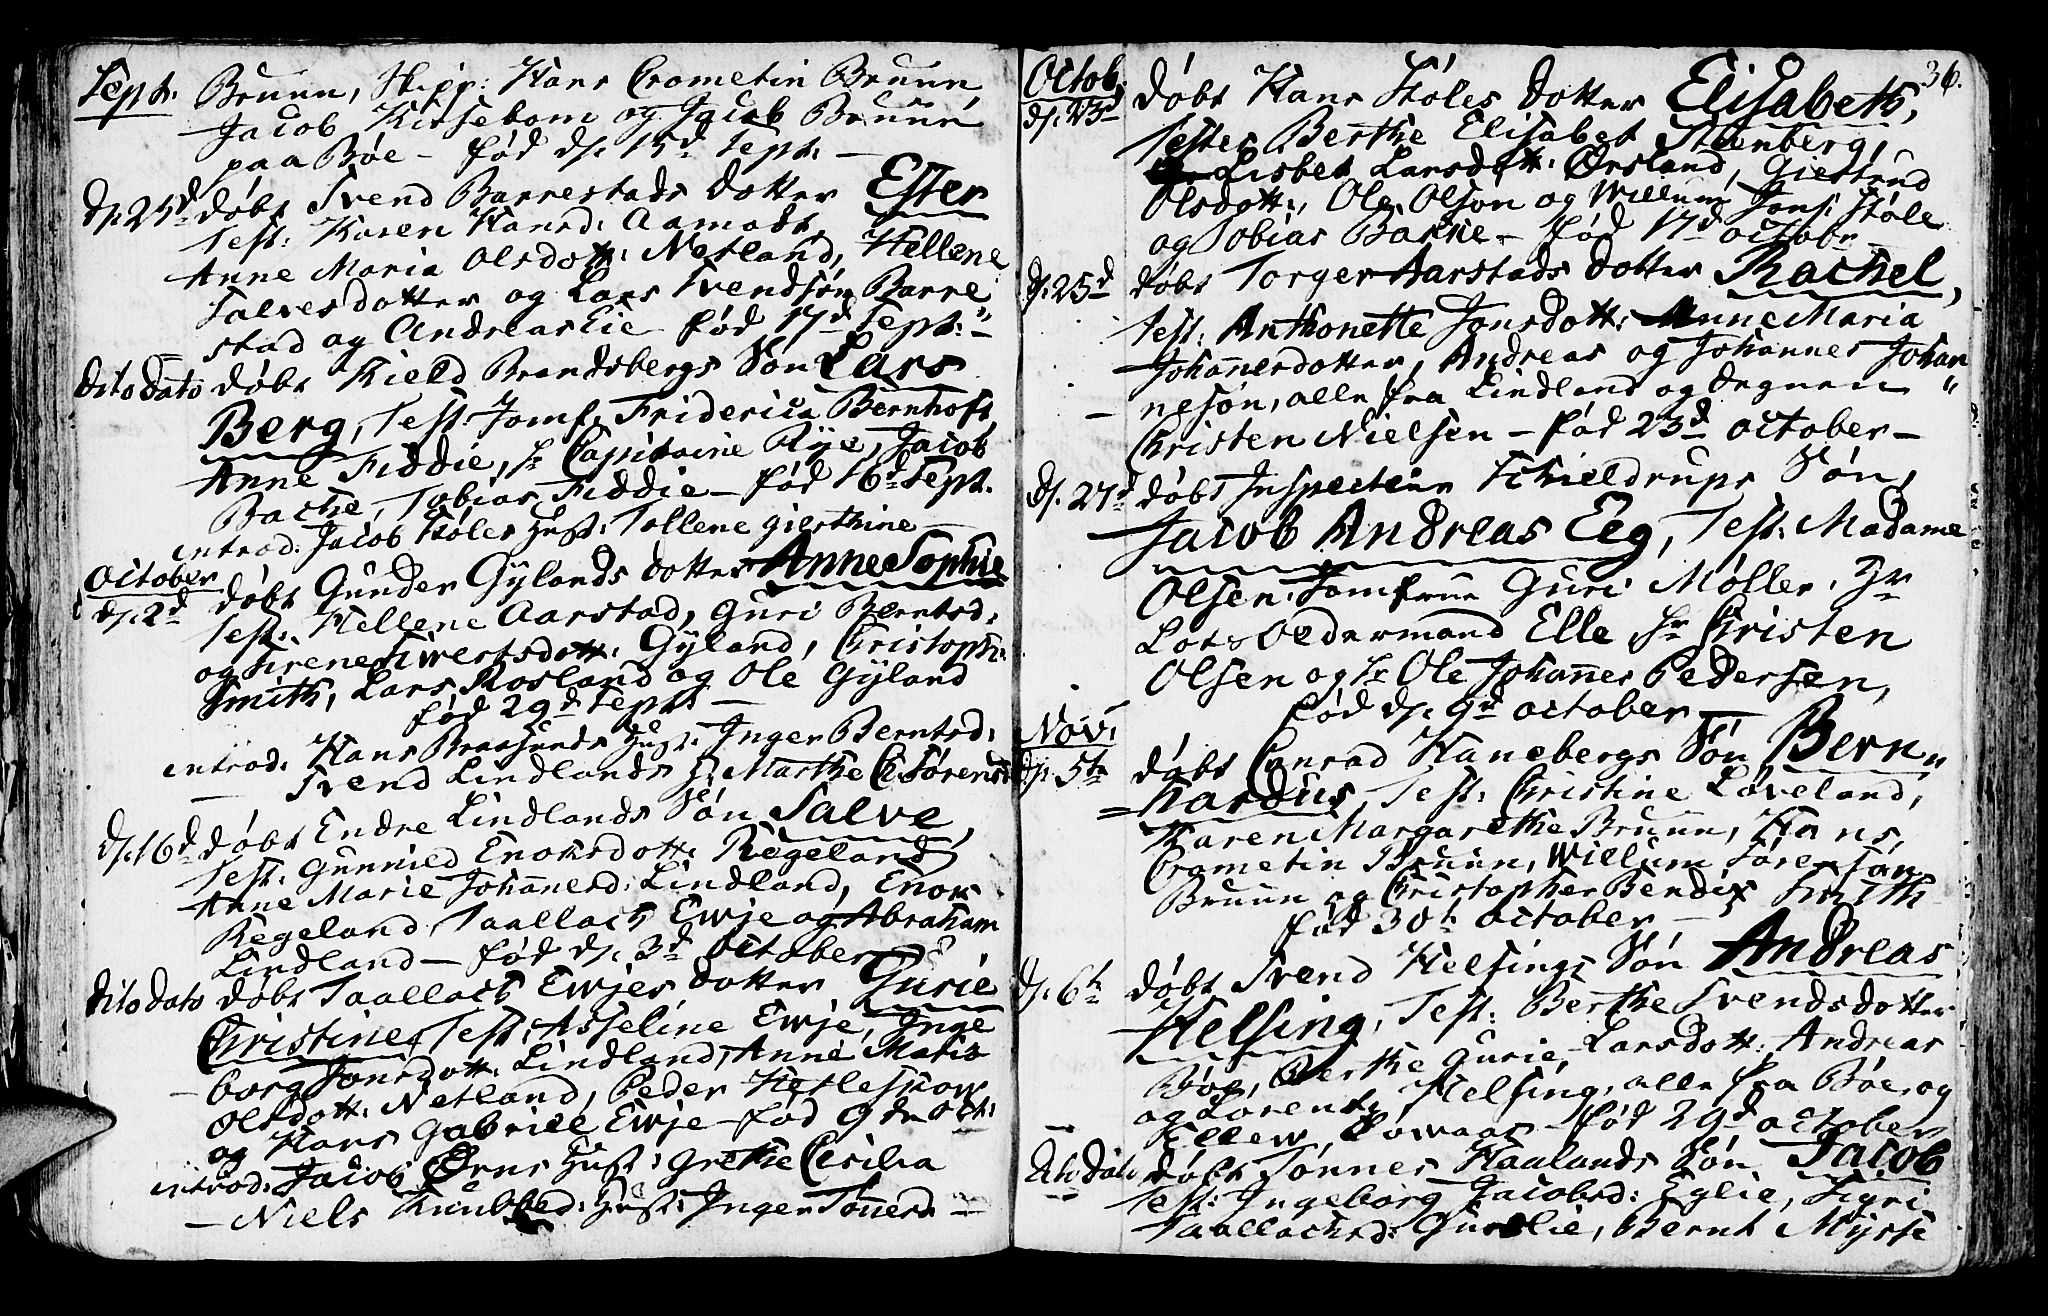 Sept: Bruun, Skipp: Hans Crometin Bruun,
Jacob Kirsebom og Jacob Bruun
paa Bøe – fød d: 15d Sept: –
d: 25d døbt Svend Barrestads dotter Ester
Test: Karen Hansd: Aamodt,
Anne Maria Olsdott: Netland, Hellene
Salvesdotter og Lars Svendsøn Barre„
stad og Andreas Eie fød 17d Sept: –
dito dato døbt Kield Brandsbergs Søn Lars
Berg, Test: Jomf: Friderica Bernhoft,
Anne Fiddie, Hr Capitaine Rye, Jacob
Bache, Tobias Fiddie – fød 16d Sept.
introd: Jacob Støles Hust: Tollene Gierthine –
October
d: 2d døbt Gunder Gylands dotter Anne Sophie
Test: Hellene Aarstad, Guri Berntsd:
og Sirene Siwertsdott: Gyland, Christoph:
Smith, Lars Rosland og Ole Gyland
fød 29d Sept: –
introd: Hans Braasunds Hust: Inger Berntsd:
– Svend Lindlands H: Marthe C. Sørensd
d: 16d døbt Endre Lindlands Søn Salve,
Test: Gunnild Enoksdott: Regeland
Anne Marie Johannesd: Lindland, Enok
Regeland, Taallach Ewje og Abraham
Lindland – fød d: 3d October
dito dato døbt Taallach Ewjes dotter Gurie
Christine, Test: Asseline Ewje, Inge
– borg Jonsdott: Lindland, Anne Maria
Olsdott: Netland, Peder Hetleskow
og Hans Gabriell Ewje – fød 9de Oct:
introd: Jacob Ørns Hust: Grethe Cicilia
– Niels Hust: Inger Tønnesd: –
36.
Octob:
d: 23d døbt Hans Støles dotter Elisabeth,
Testes Berthe Elisabet Steenberg,
Lisbet Larsdott: Ørsland, Giertrud
Olsdott:, Ole Olson og Willum Jons: Støle
og Tobias Bakke – fød 17d octobr –
d: 25d døbt Torger Aarstads dotter Rachel,
Test: Anthonette Jonsdott: Anne Maria
Johannesdotter, Andreas og Johannes Johan„
– nesøn, alle fra Lindland og Degnen
Christen Nielsen – fød 23d october –
d: 27d døbt Inspecteur Schieldrups Søn,
Jacob Andreas Eeg, Test: Madame
Olsen, Jomfrue Guri Møller, Hr
Lots Oldermand Elle, Hr Christen
Olsen og Hr Ole Johannes Pedersen,
fød d: 9d october –
Nov:
d: 5te døbt Conrad Hanebergs Søn Bern„
= hardus, Test: Christine Løveland,
Karen Margarethe Bruun, Hans
Crometin Bruun, Willum Sørensøn
Bruun og Christopher Bendix Smith
fød 30t october –
d: 6te døbt Svend Helsings Søn Andreas
Helsing, Test: Berthe Svendsdotter
Bøe, Berthe Gurie Larsdott: Andreas
og Lorents Helsing, alle fra Bøe, og
– Ellew Lowaas – fød 29d october
dito dato døbt Tønnes Haalands Søn Jacob
Test: Ingeborg Jacobsd: Eglie, Sigri
Taallachsd: Guslie, Bernt Myrse